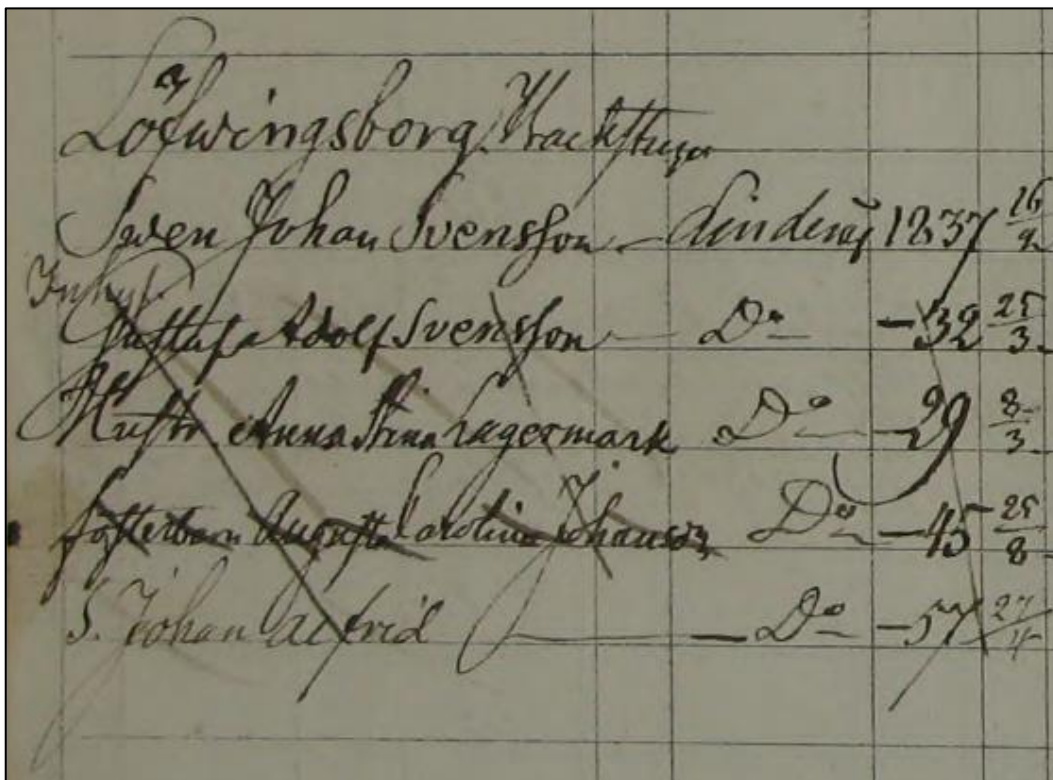 Löfwingsborg Backstuga
Swen Johan Svensson - Linderås 1837 16/9
Inhys.
Gustaf Adolf Svensson - Do - 32 25/3
Hustr. Anna Stina Lagermark Do - 29 8/3
fosterbarn Augusta Carolina Johansdr Do - 45 25/8
S. Johan Alfrid - Do - 57 27/4